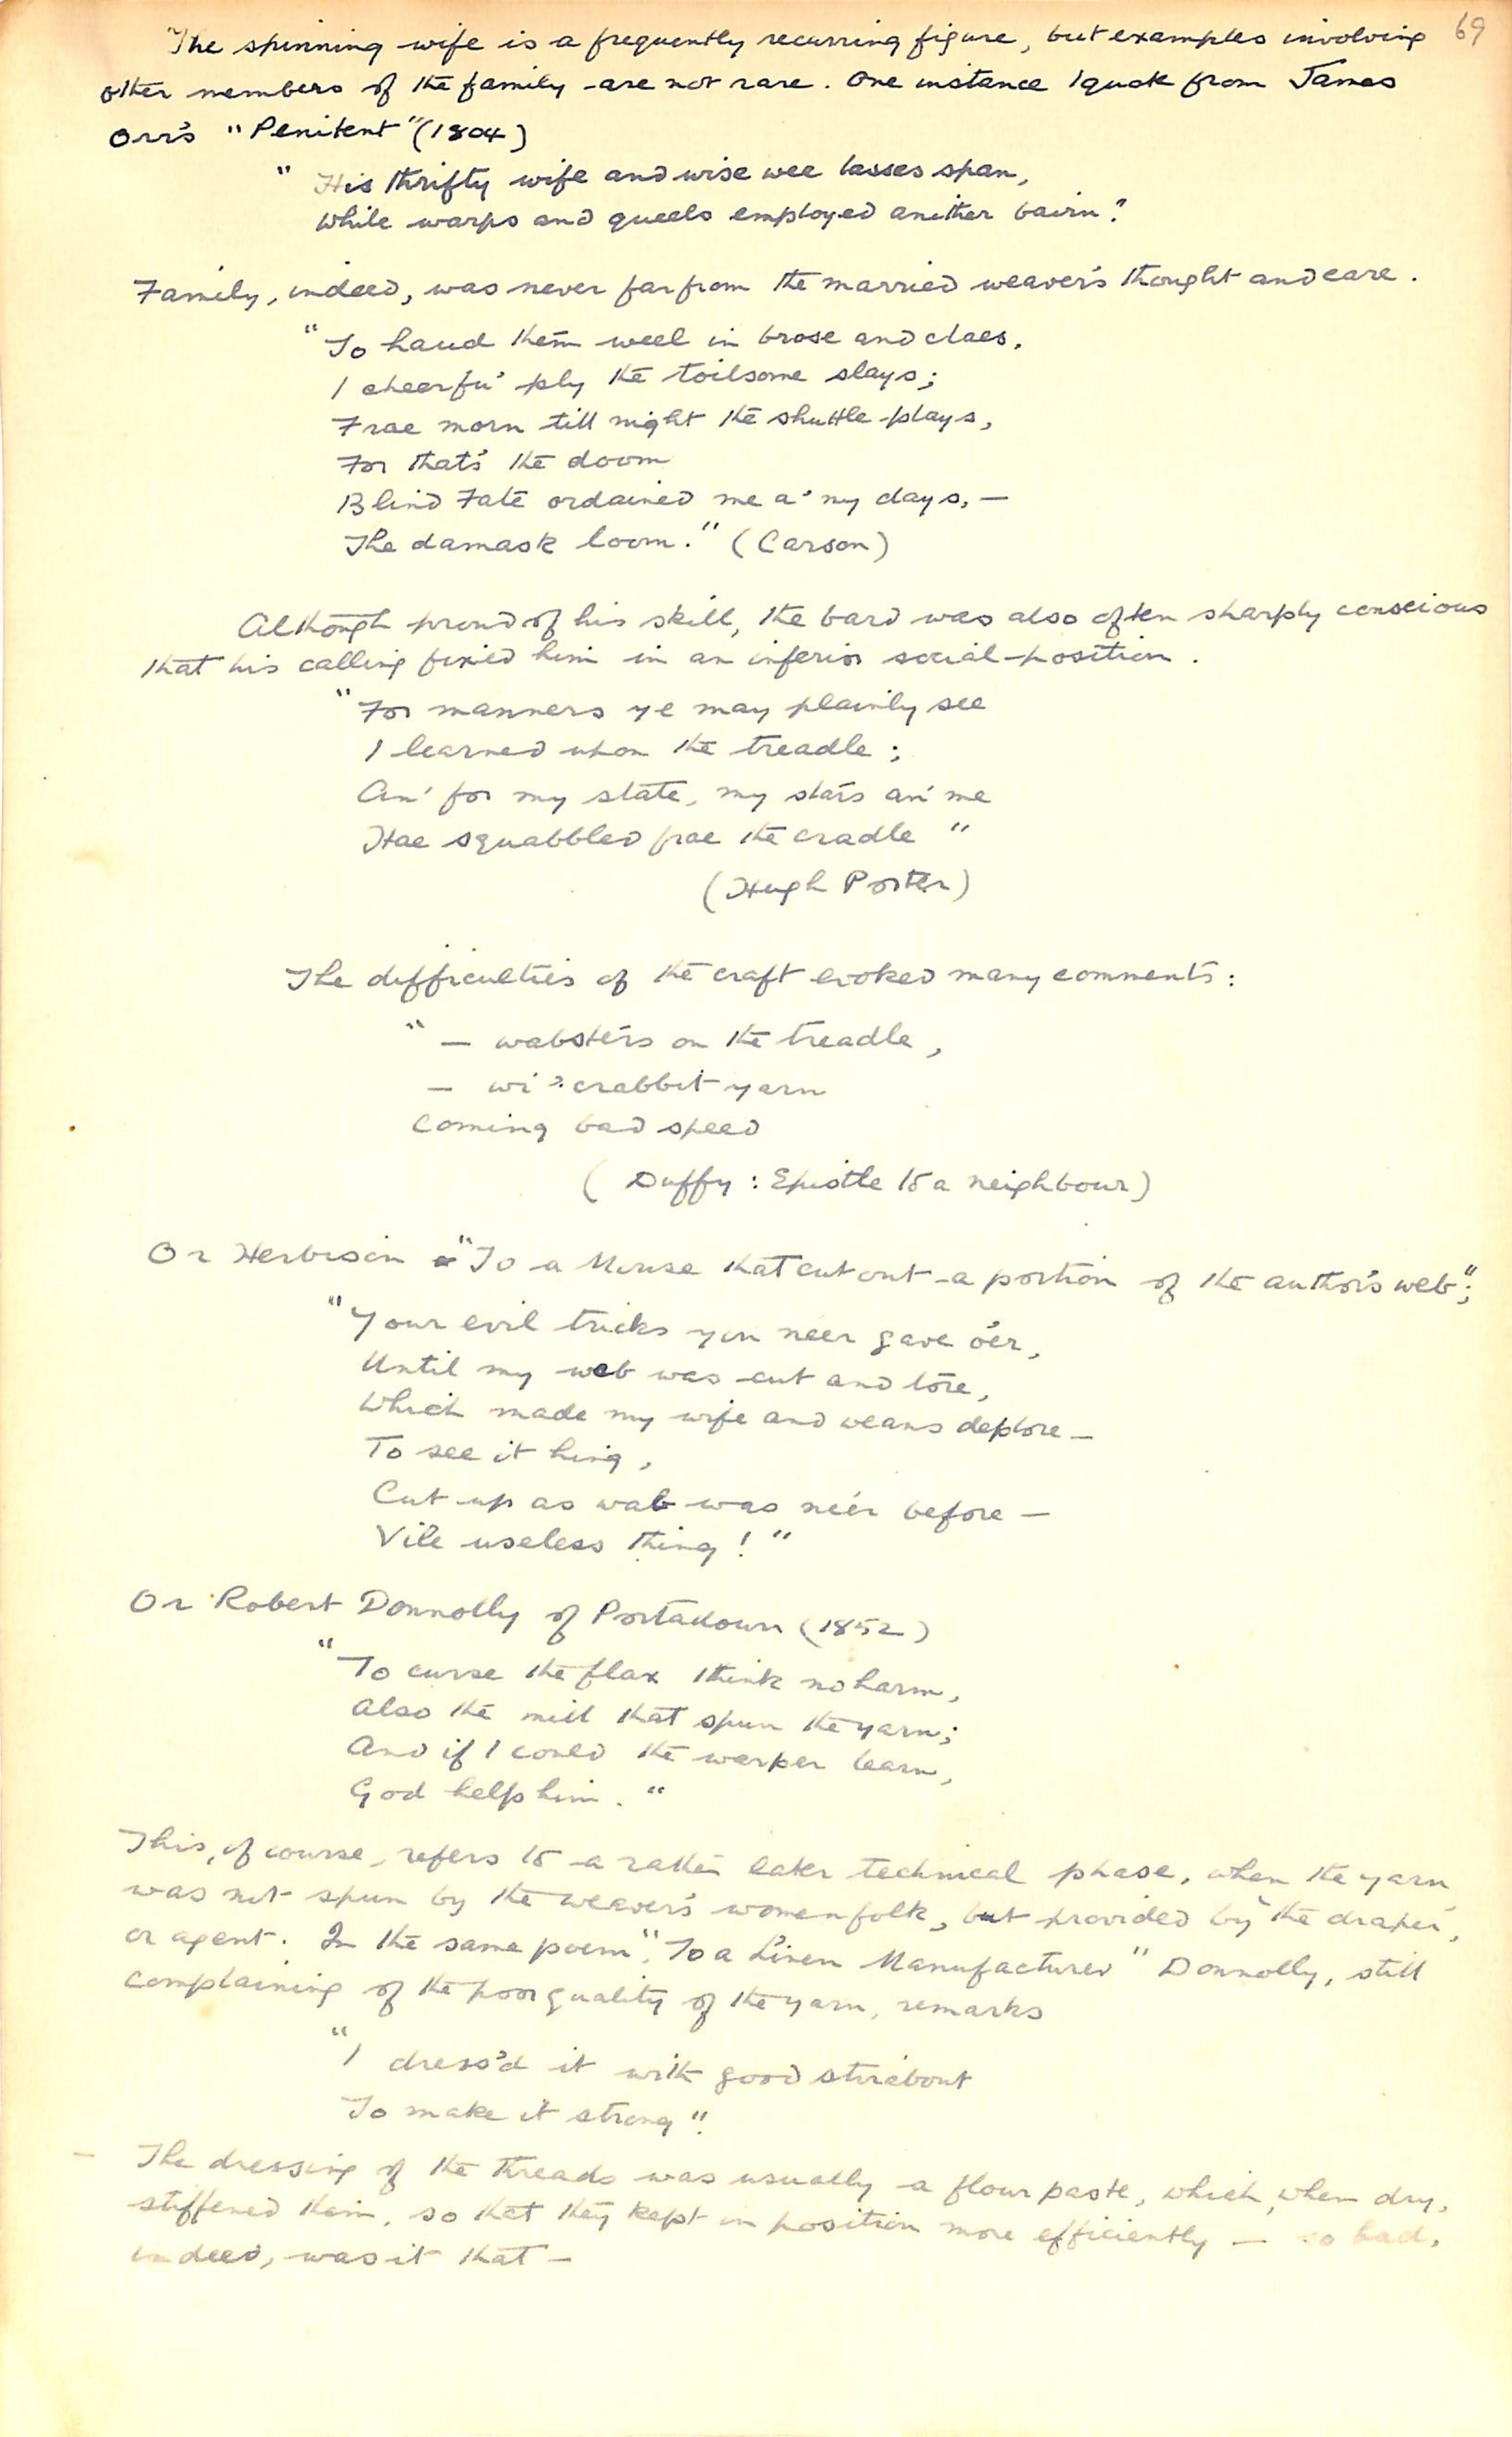 69
The spinning wife is a frequently recurring figure, but examples involving
other members of the family are not rare. One instance I quote from James
Orr's "Penitent" (1804)
" His thrifty wife and wise wee lasses span,
While warps and queels employed anither bairn."
Family, indeed, was never far from the married weaver's thought and care.
"To haud them weel in brose and claes,
I cheerfu' ply the toilsome slays;
Frae morn till night the shuttle plays,
For that's the doom
Blind Fate ordained me a' my days, —
The damask loom." (Carson)
Although proud of his skill, the bard was also often sharply conscious
that his calling fixed him in an inferior social position.
"For manners ye may plainly see
I learned upon the treadle;
An' for my state, my stars an' me
Hae squabbled frae the cradle "
(Hugh Porter)
The difficulties of the craft evoked many comments:
" — wabsters on the treadle,
— wi' crabbit yarn
Coming bad speed
( Duffy: Epistle to a neighbour)
Or Herbison "To a Mouse that cut out a portion of the author's web";
"Your evil tricks you neer gave o'er,
Until my wab was cut and tore,
Which made my wife and weans deplore —
To see it hing,
Cut up as wab was ne'er before —
Vile useless thing!"
Or Robert Donnolly of Portadown (1852)
"To curse the flax I think no harm,
Also the mill that spun the yarn;
And if I could the warper learn,
God help him."
This, of course, refers to a rather later technical phase, when the yarn
was not spun by the weaver's womenfolk, but provided by the draper,
or agent. In the same poem, "To a Linen Manufacturer" Donnolly, still
complaining of the poor quality of the yarn, remarks
"I dress'd it with good stirabout
To make it strong".
— The dressing of the threads was usually a flour paste, which, when dry,
stiffened them, so that they kept in position more efficiently — so bad,
indeed, was it that —